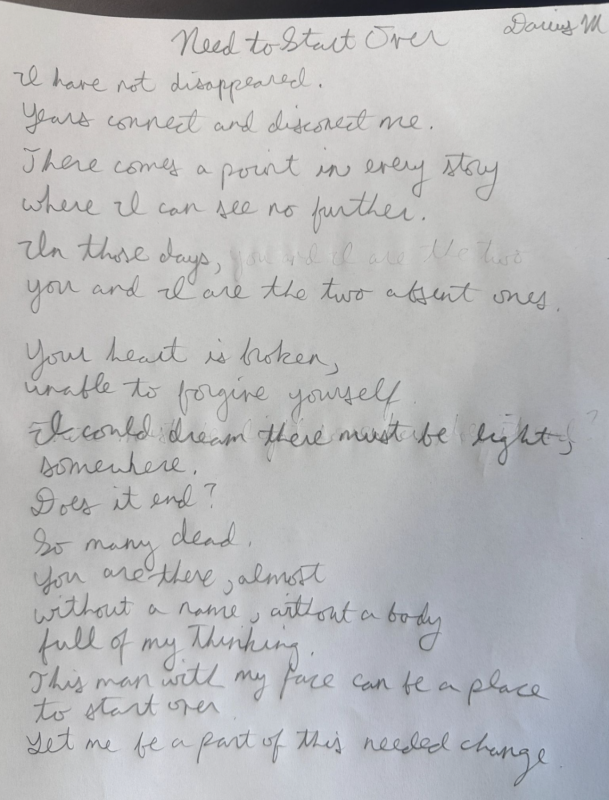 Need to Start Over
Darius M
I have not disappeared.
Years connect and disconect me.
There comes a point in every story
where I can see no further.
In those days, you and I are the two
you and I are the two absent ones.
Your heart is broken,
unable to forgive yourself.
I could dream there must be light,
somewhere.
Does it end?
So many dead.
You are there, almost
without a name, without a body
full of my thinking.
This man with my face can be a place
to start over
Let me be a part of this needed change